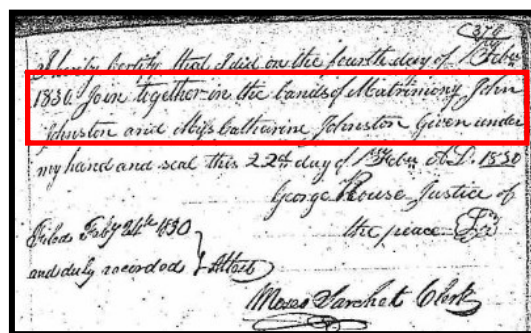 (379
I hereby Certify that I did on the fourth day of Feby
1830. Join together in the bands of Matrimony John
Johnston and Miss Catharine Johnston Given under
my hand and seal this 22d day of Feby A.D. 1830
George House Justice of
the peace
Filed Feby 24th 1830
and duly recorded } Attest
Moses Sarchet Clerk